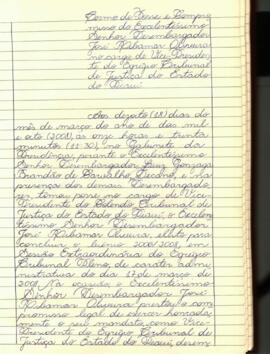 Termo de Posse e Compro-
misso do Excelentíssimo
Senhor Desembargador
José Ribamar Oliveira
no cargo de Vice-Presiden-
te do Egrégio Tribunal
de Justiça do Estado
do Piauí.
Aos dezoito (18) dias do
mês de março do ano de dois mil
e oito (2008), às onze horas e trinta
minutos (11:30), no Gabinete da
Presidência, perante o Excelentíssimo
Senhor Desembargador Luiz Gonzaga
Brandão de Carvalho, Decano, e na
presença dos demais Desembargado-
res, tomou posse no cargo de Vice-
Presidente do Egrégio Tribunal de
Justiça do Estado do Piauí, o Excelen-
tíssimo Senhor Desembargador
José Ribamar Oliveira, eleito para
concluir o biênio 2006/2008, em
Sessão Extraordinária do Egrégio
Tribunal Pleno, de caráter admi-
nistrativo do dia 17 de março de
2008. Na ocasião, o Excelentíssimo
Senhor Desembargador José
Ribamar Oliveira, prestou o com-
promisso legal de exercer honrada-
mente o seu mandato como Vice-
Presidente do Egrégio Tribunal de
Justiça do Estado do Piauí,